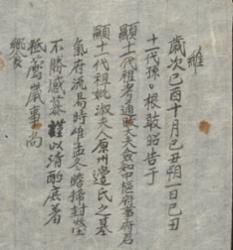 維
歲次己酉十月己丑朔一日己丑
十一代孫○根敢昭告于
顯十一代祖考通政大夫僉知中樞府事府君
顯十一代祖妣淑夫人原州邊氏之墓
氣序流易時維孟冬瞻掃封塋
不勝感慕謹以淸酌庶羞
祗薦歲事尙
饗